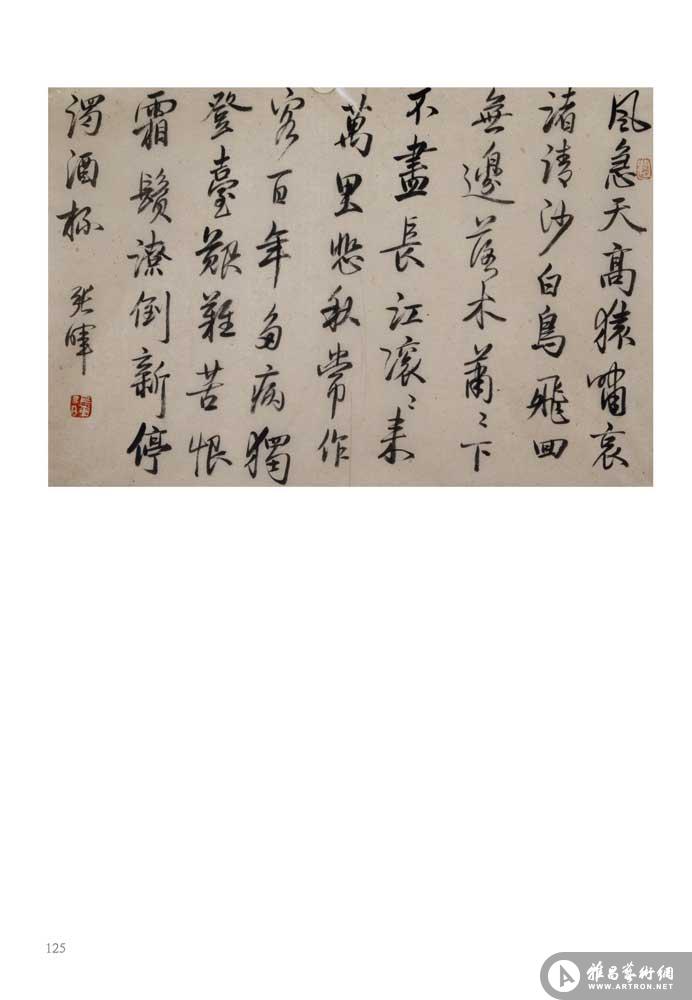 風急天高猿嘯哀
渚清沙白鳥飛回
無邊落木蕭〻下
不盡長江滾〻来
萬里悲秋常作
客百年多病獨
登臺艱難苦恨
霜鬢潦倒新停
濁酒杯
張暉
125
雅昌藝術網
WWW.ARTRON.NET